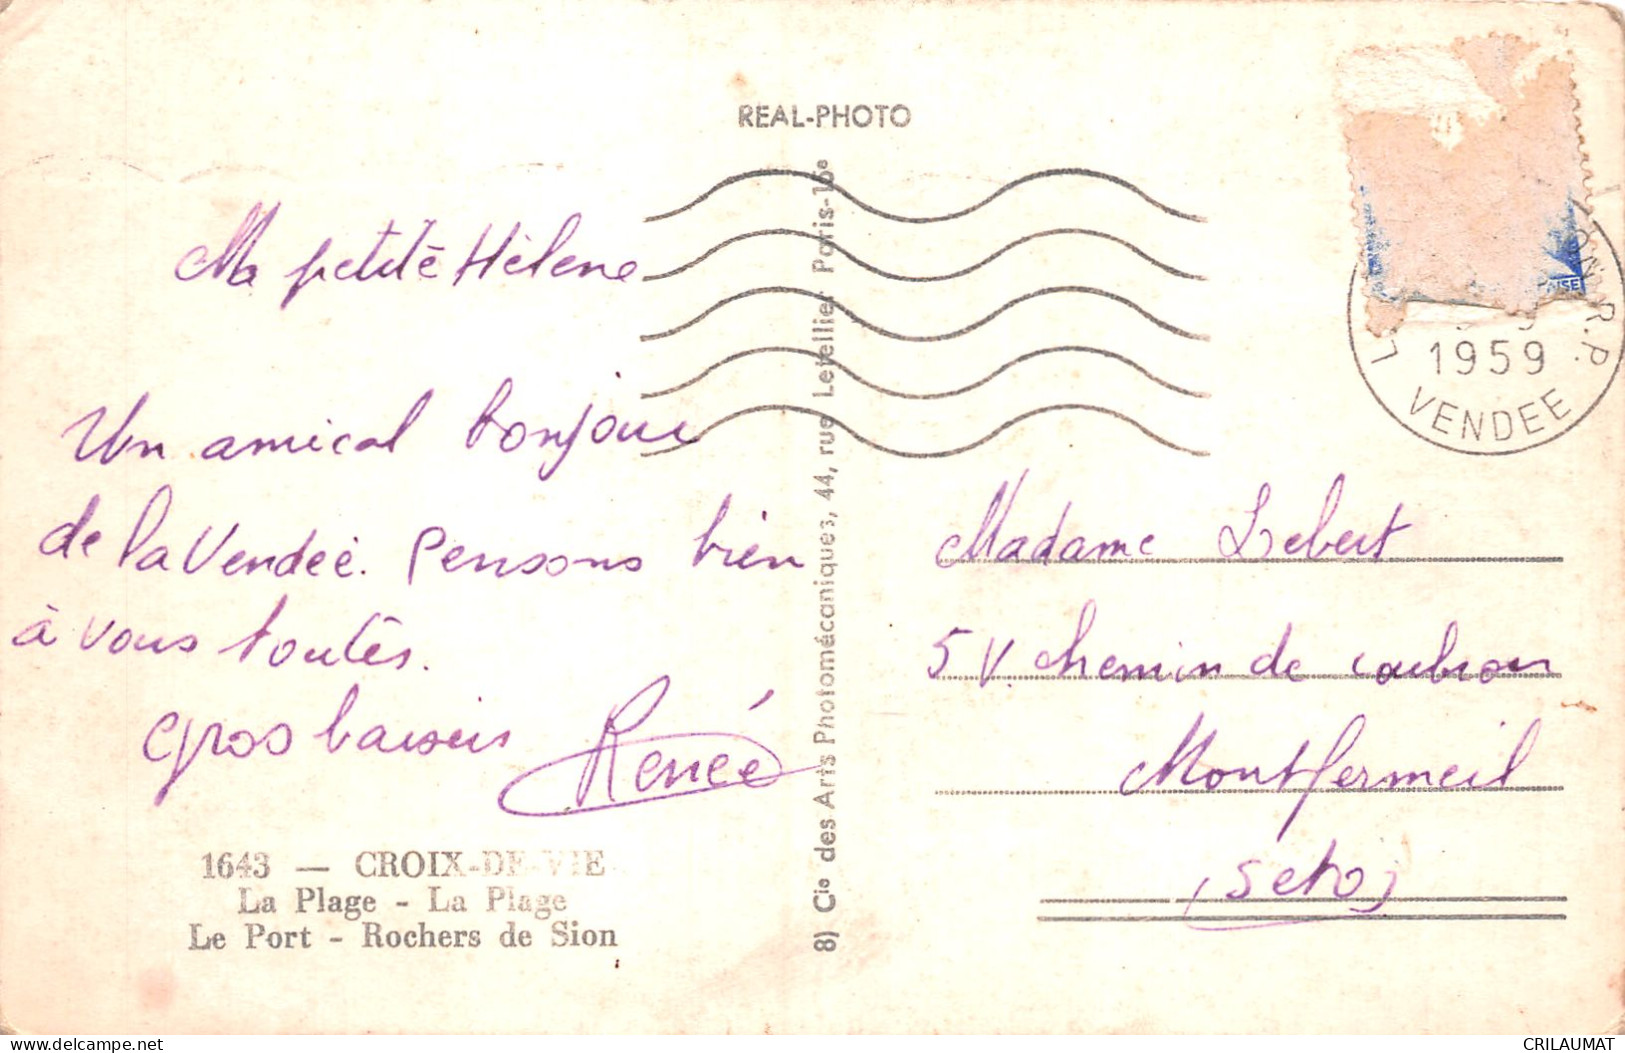 REAL-PHOTO
Ma petite Hélène
Un amical bonjour
de la Vendée. Pensons bien
à vous toutes.
Gros baisers Renée
1643 — CROIX-DE-VIE
La Plage - La Plage
Le Port - Rochers de Sion
8) Cie des Arts Photomécaniques, 44, rue Letellier Paris-15e
ON R.P.
1959
VENDEE
Madame Lebert
5 V. chemin de
Montfermeil
(S et O)
www.delcampe.net
CRILAUMAT